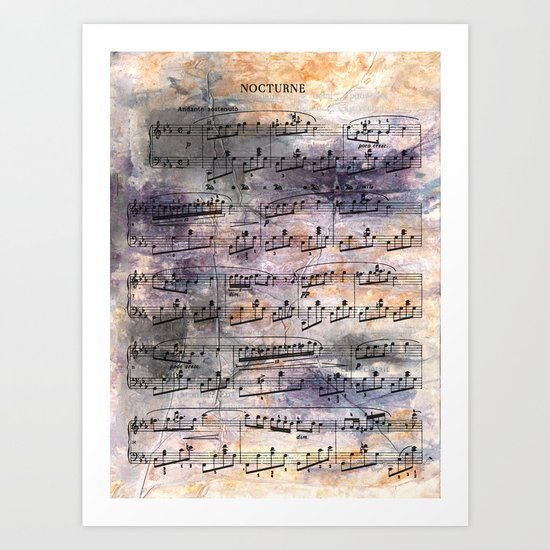 NOCTURNE
Andante sostenuto
p
poco cresc.
simile
p
dim.
pp
poco cresc.
p
dim.